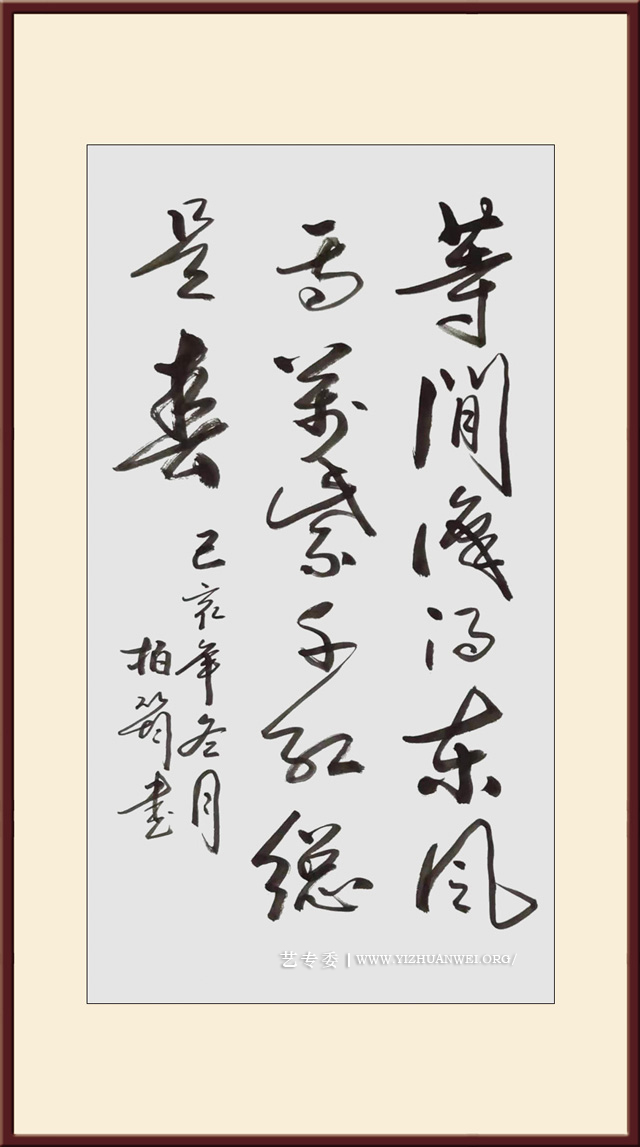 等閒識得東風
面萬紫千紅總
是春
己亥年冬月
柏筠書
艺专委 | WWW.YIZHUANWEI.ORG/